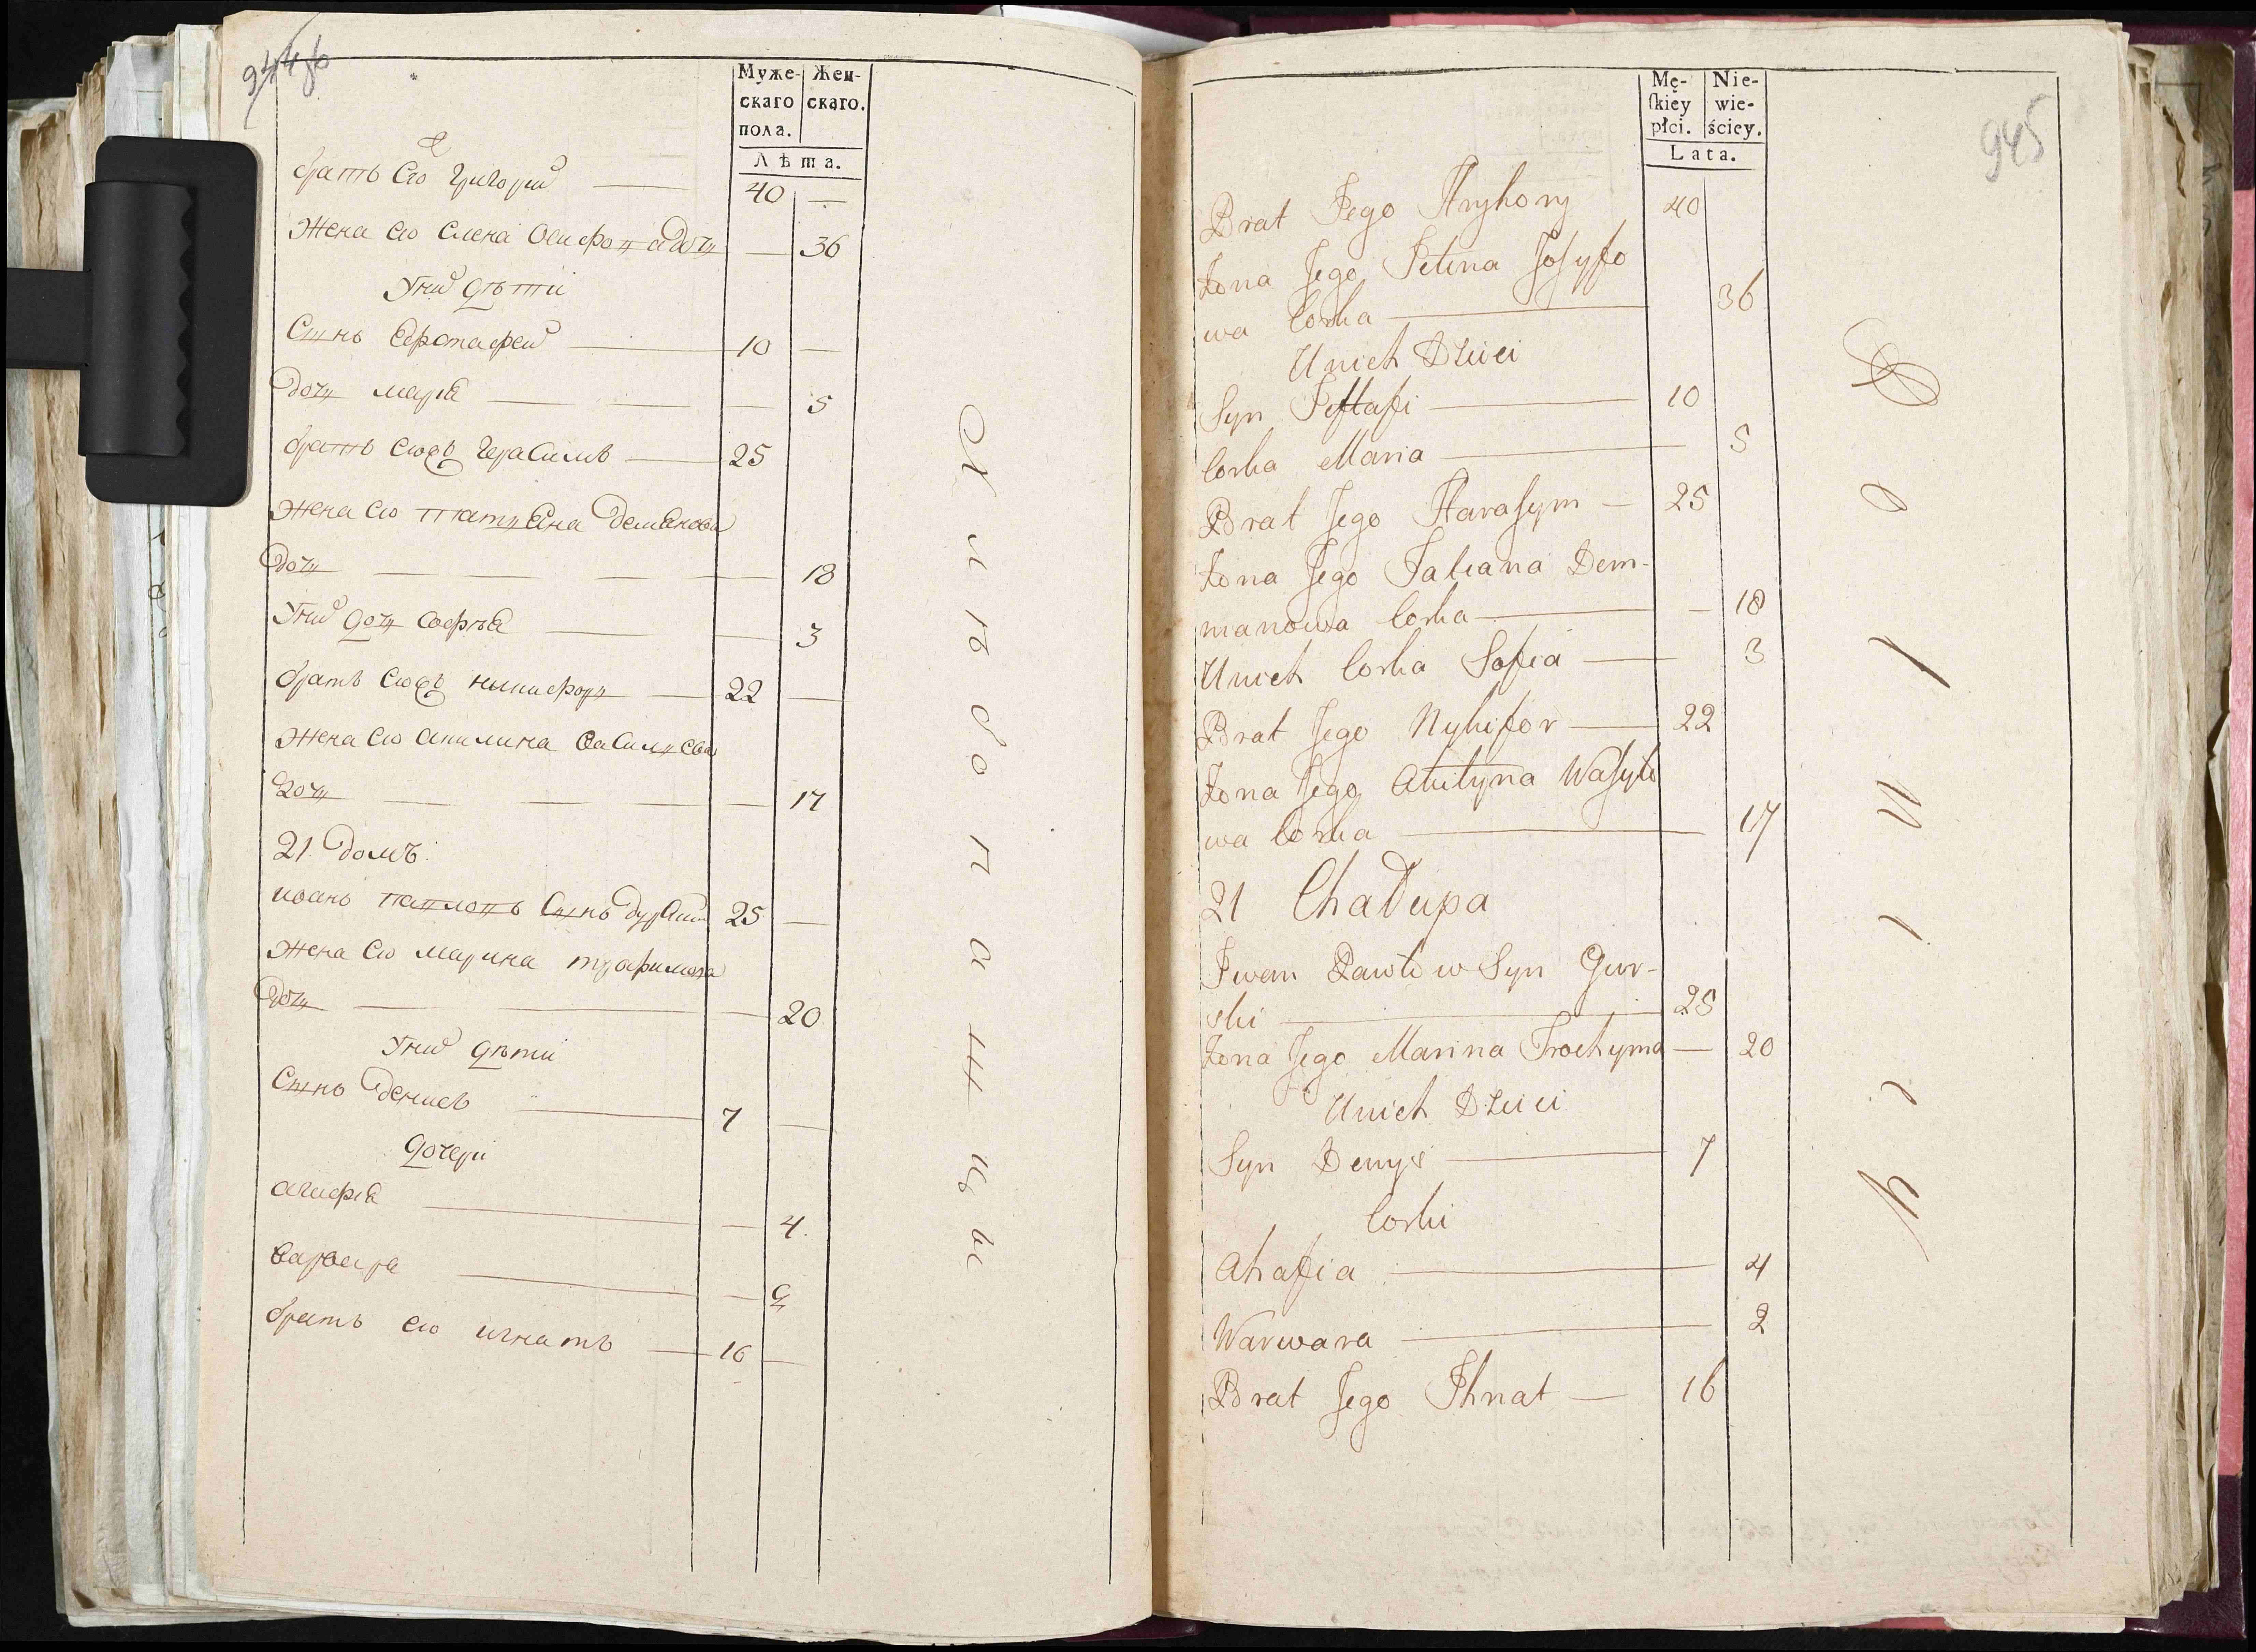 944 об
Муже- Жен-
скаго скаго.
пола.
Лѣта.
братъ его григорий 40 —
жена его елена осифова дочъ — 36
У них дѣти
Сынъ Евстафей 10 —
дочъ мария — 5
братъ его герасимъ 25
жена его татыяна демянова
дочъ — 18
У них дочъ софъя — 3
братъ его никифоръ 22 —
жена его акилина василъева
дочъ — 17
21. домъ.
иванъ павловъ сынъ 25 —
жена его марина трофимова
дочъ — 20
У них дѣти
Сынъ денисъ 7 —
дочери
агафия — 4.
варвара — 2
братъ его игнатъ 16 —
Хлѣбопашцы
945
Mę- Nie-
ſkiey wie-
płci. ściey.
Lata.
Brat Jego Hryhory 40
Żona Jego Jełena Josyfo
wa Corka 36
U nich Dzieci
Syn Jestafi 10
Corka Maria 5
Brat Jego Harasym — 25
Żona Jego Tatiana Dem-
manowa Corka — 18
U nich Corka Sofia 3
Brat Jego Nykifor 22
Żona Jego Akilyna Wasyło
wa Corka 17
21 Chałupa
Iwan Pawłow Syn Gur-
ski 25
Żona Jego Marina Trochyma — 20
U nich Dzieci
Syn Denys 7
Corki
Ahafia 4
Warwara 2
Brat Jego Ihnat — 16
Rolnicy